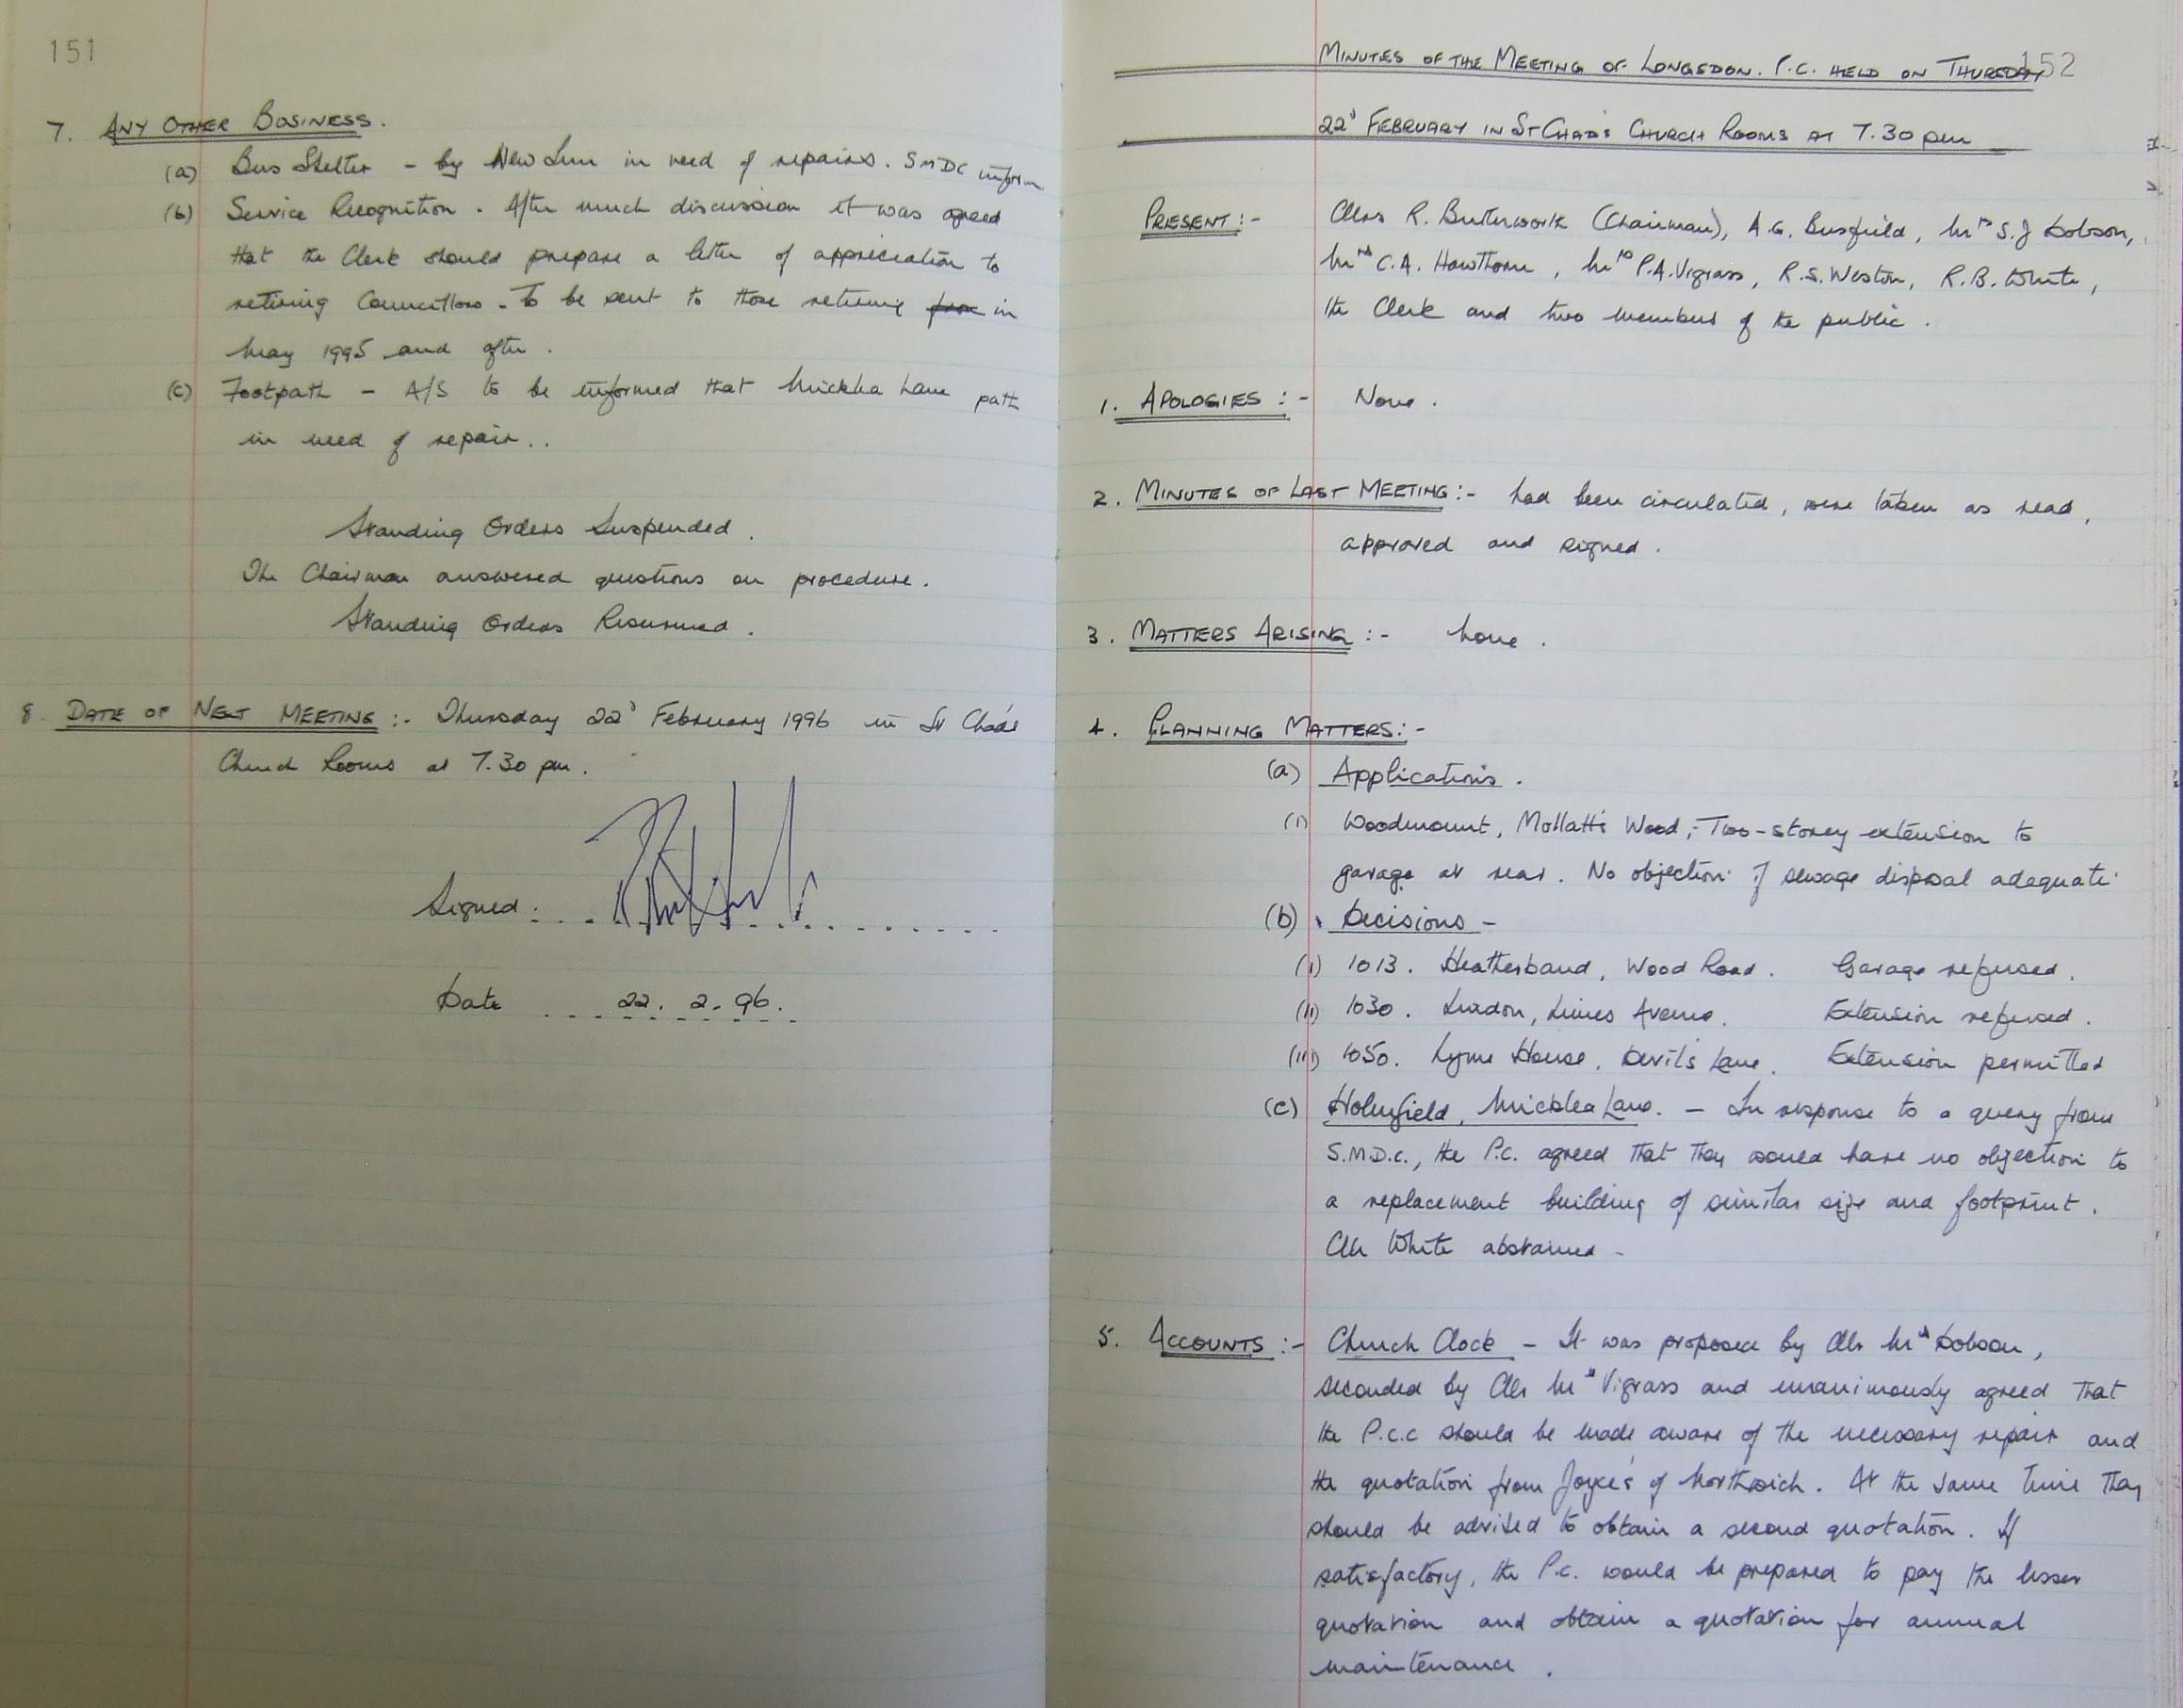 151
7. ANY OTHER BUSINESS.
(a) Bus Shelter - by New Inn in need of repairs. SMDC inform
(b) Service Recognition. After much discussion it was agreed
that the Clerk should prepare a letter of appreciation to
retiring Councillors - To be sent to those retiring from in
May 1995 and after.
(c) Footpath - A/S to be informed that Micklea Lane path
in need of repair..
Standing Orders Suspended.
The Chairman answered questions on procedure.
Standing Orders Resumed.
8. DATE OF NEXT MEETING:- Thursday 22' February 1996 in St Chad's
Church Rooms at 7.30 pm.
Signed:
Date 22. 2. 96.
152
MINUTES OF THE MEETING OF LONGSDON. P.C. HELD ON THURSDAY
22' FEBRUARY IN ST CHAD'S CHURCH ROOMS AT 7.30 pm
PRESENT:- Cllrs R. Butterworth (Chairman), A G. Busfield, Mrs S.J Dobson,
Mrs C.A. Hawthorne, Mrs P.A. Vigrass, R.S. Weston, R.B. White,
the Clerk and two members of the public.
1. APOLOGIES:- None.
2. MINUTES OF LAST MEETING:- had been circulated, were taken as read,
approved and signed.
3. MATTERS ARISING:- None.
4. PLANNING MATTERS:-
(a) Applications.
(i) Woodmount, Mollatts Wood,- Two-storey extension to
garage at rear. No objection if sewage disposal adequate
(b) Decisions -
(i) 1013. Heatherband, Wood Road. Garage refused.
(ii) 1030. Luxdon, Limes Avenue. Extension refused.
(iii) 1050. Lyme House, Devil's Lane. Extension permitted
(c) Holmfield, Micklea Lane. - In response to a query from
S.M.D.C., the P.C. agreed that they would have no objection to
a replacement building of similar size and footprint.
Cllr White abstained -
5. ACCOUNTS:- Church Clock - It was proposed by Cllr Mrs Dobson,
seconded by Cllr Mrs Vigrass and unanimously agreed that
the P.c.c should be made aware of the necessary repair and
the quotation from Joyce's of Northwich. At the same time they
should be advised to obtain a second quotation. If
satisfactory, the P.c. would be prepared to pay the lesser
quotation and obtain a quotation for annual
maintenance.